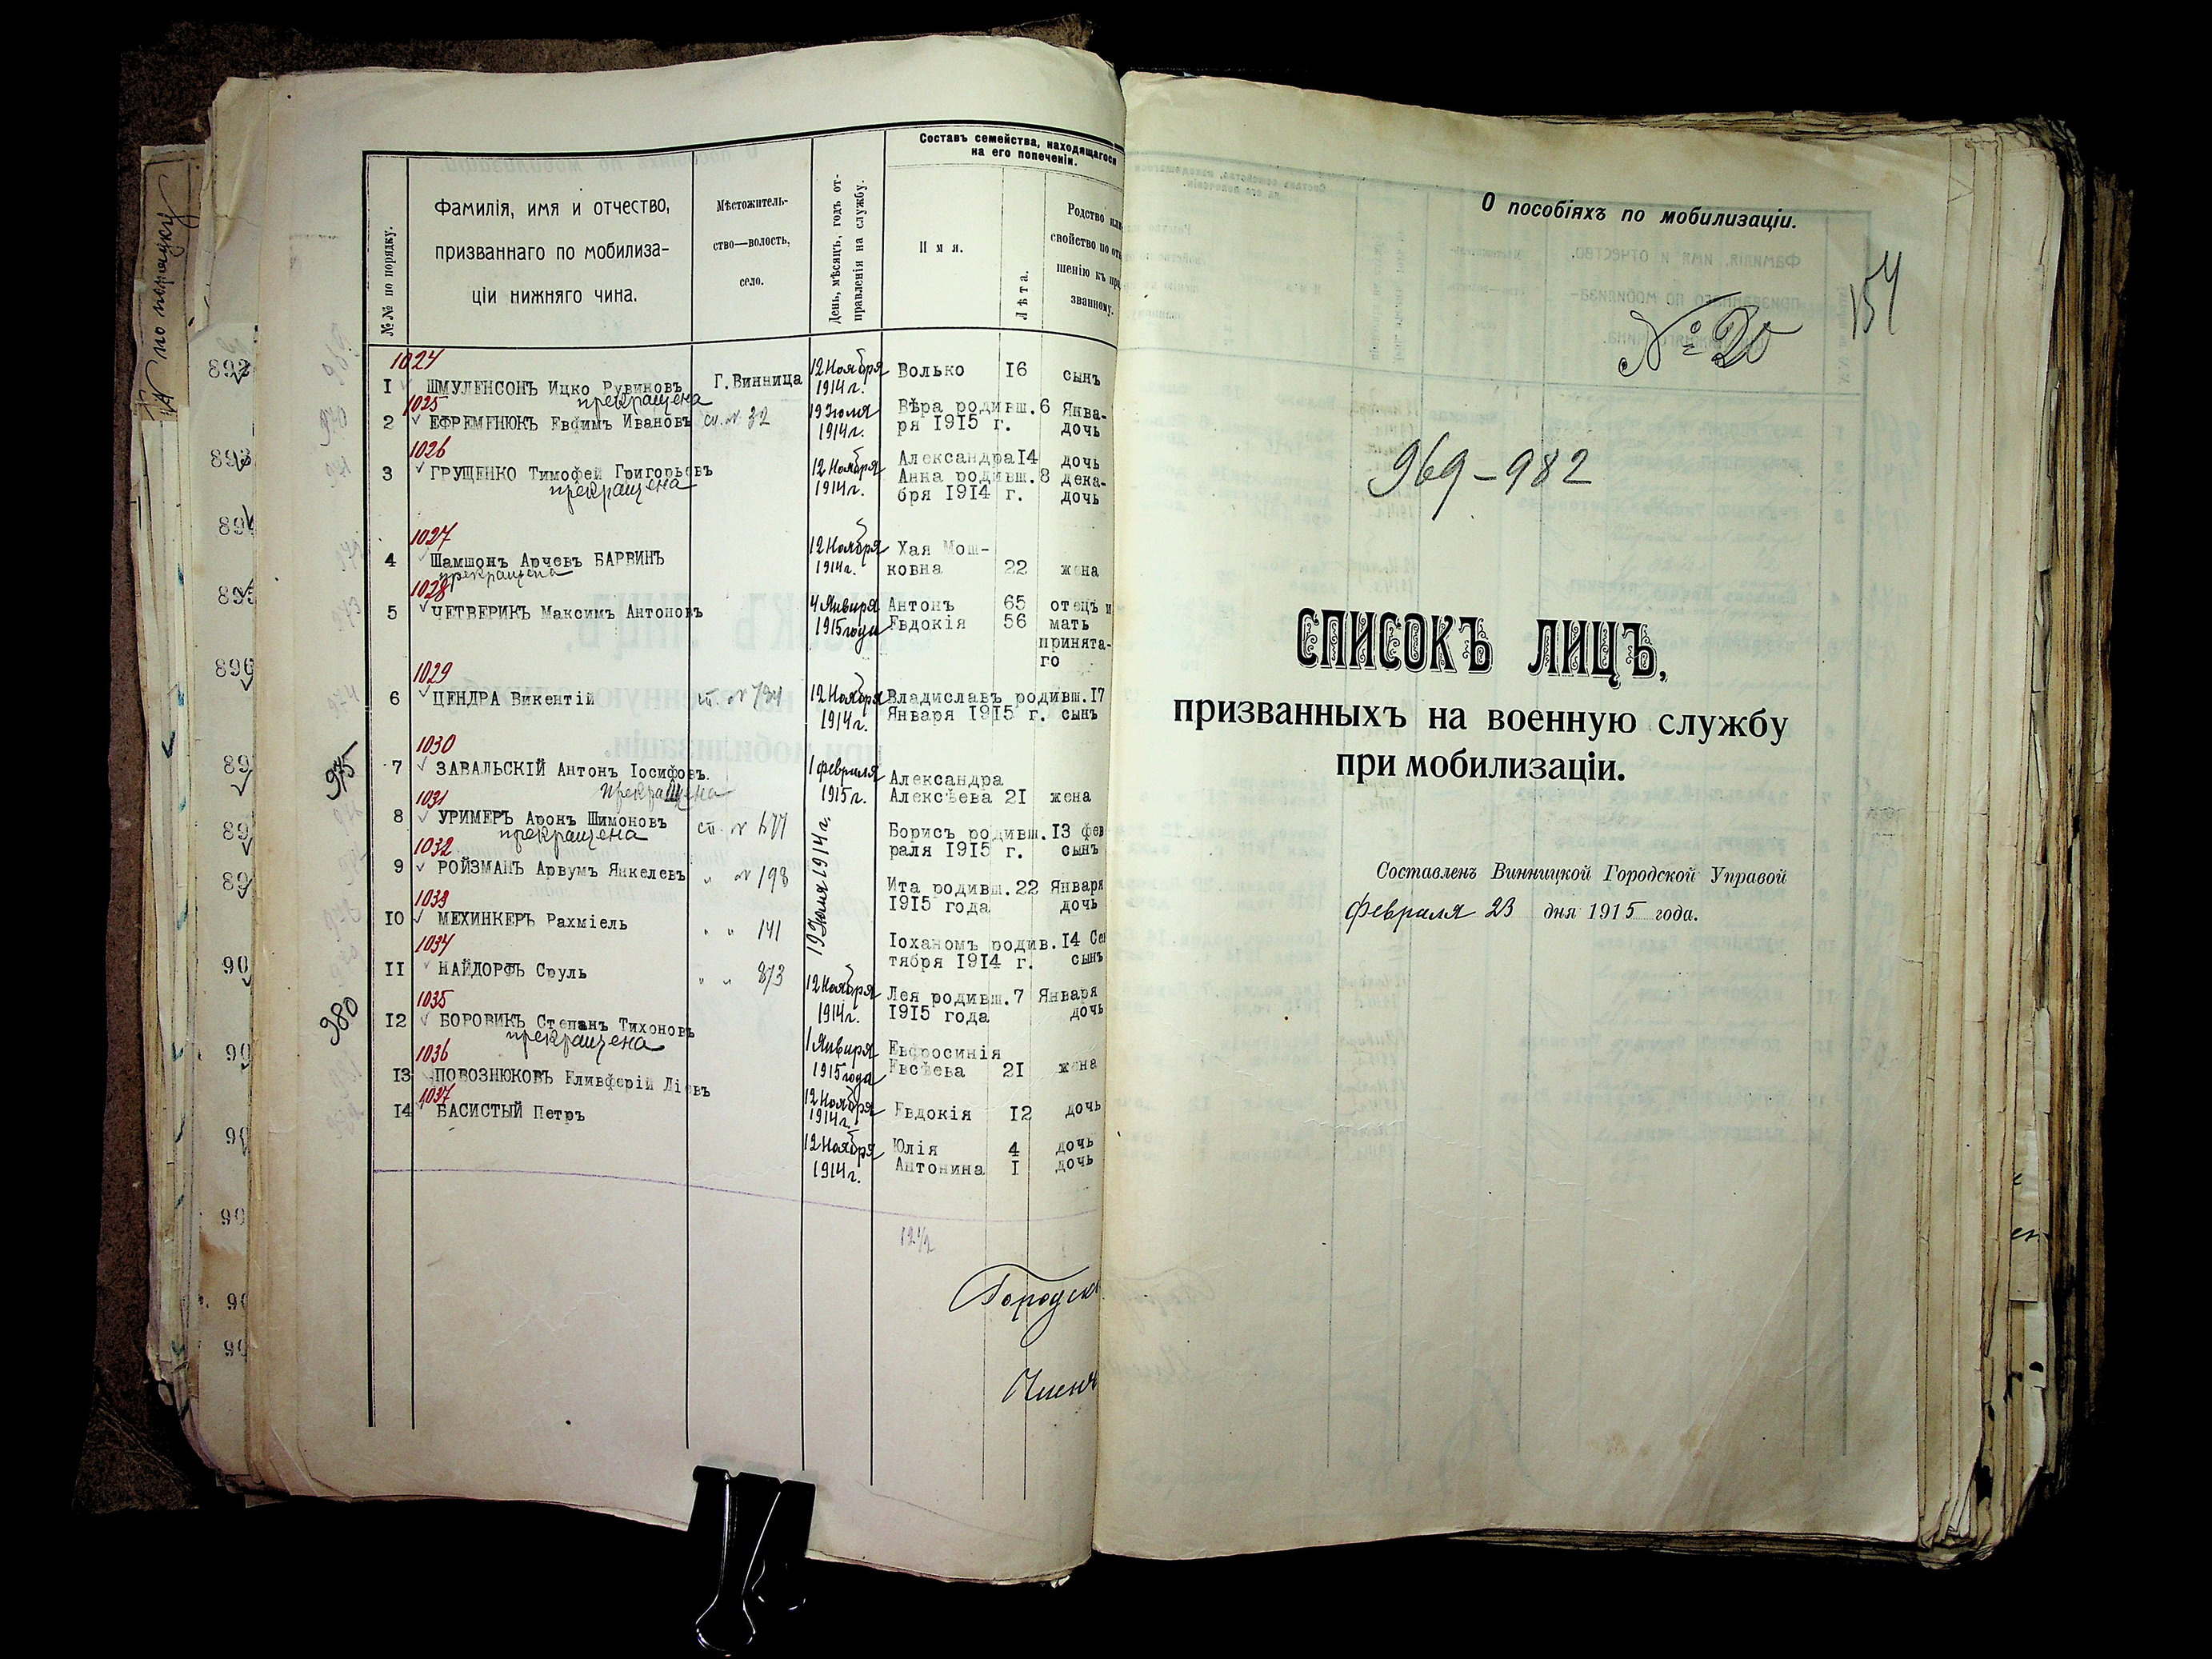 № по порядку
№№ по порядку.
Фамилія, имя и отчество,
призваннаго по мобилиза-
ціи нижняго чина.
Мѣстожитель-
ство—волость,
село.
День, мѣсяцъ, годъ от-
правленія на службу.
Составъ семейства, находящагося
на его попеченіи.
Имя.
Лѣта.
Родство или
свойство по отн
шенію къ при
званному.
1024
1 ШМУЛЕНСОНЪ Ицко Рувиновъ Г.Винница 12 Ноября 1914 г. Волько 16 сынъ
прекращена
1025
2 ЕФРЕМЕНЮКЪ Евфимъ Ивановъ ст. № 32 19 Іюля 1914 г. Вѣра родивш. 6 Янва-
ря 1915 г. дочь
1026
3 ГРУЩЕНКО Тимофей Григорьевъ 12 Ноября 1914 г. Александра 14 дочь
прекращена Анна родивш. 8 дека-
бря 1914 г. дочь
1027
4 Шамшонъ Арчевъ БАРВИНЪ 12 Ноября 1914 г. Хая Мош-
прекращена ковна 22 жена
1028
5 ЧЕТВЕРИКЪ Максимъ Антоновъ 4 Января 1915 года Антонъ 65 отецъ и
Евдокія 56 мать
принята-
го
1029
6 ЦЕНДРА Викентій ст. № 734 12 Ноября 1914 г. Владиславъ родивш. 17
Января 1915 г. сынъ
1030
975 7 ЗАВАЛЬСКІЙ Антонъ Іосифовъ. 1 Февраля 1915 г. Александра
прекращена Алексѣева 21 жена
1031
8 УРИМЕРЪ Аронъ Шимоновъ ст. № 677 19 Іюля 1914 г. Борисъ родивш. 13 фев
прекращена раля 1915 г. сынъ
1032
9 РОЙЗМАНЪ Арвумъ Янкелевъ " № 198 Ита родивш. 22 Января
1915 года дочь
1033
10 МЕХИНКЕРЪ Рахміель " " 141 Іоханомъ родив. 14 Сен
тября 1914 г. сынъ
1034
11 НАЙДОРФЪ Сруль " " 873 12 Ноября 1914 г. Лея родивш. 7 Января
1915 года дочь
1035
980 12 БОРОВИКЪ Степанъ Тихоновъ 1 Января 1915 года Евфросинія
прекращена Евсѣева 21 жена
1036
13 ПОВОЗНЮКОВЪ Еливферій Ліевъ 12 Ноября 1914 г. Евдокія 12 дочь
1037
14 БАСИСТЫЙ Петръ 12 Ноября 1914 г. Юлія 4 дочь
Антонина 1 дочь
12 1/2
Городск
Член
О пособіяхъ по мобилизаціи.
154
№ 20
969-982
СПИСОКЪ ЛИЦЪ,
призванныхъ на военную службу
при мобилизаціи.
Составленъ Винницкой Городской Управой
Февраля 23 дня 1915 года.